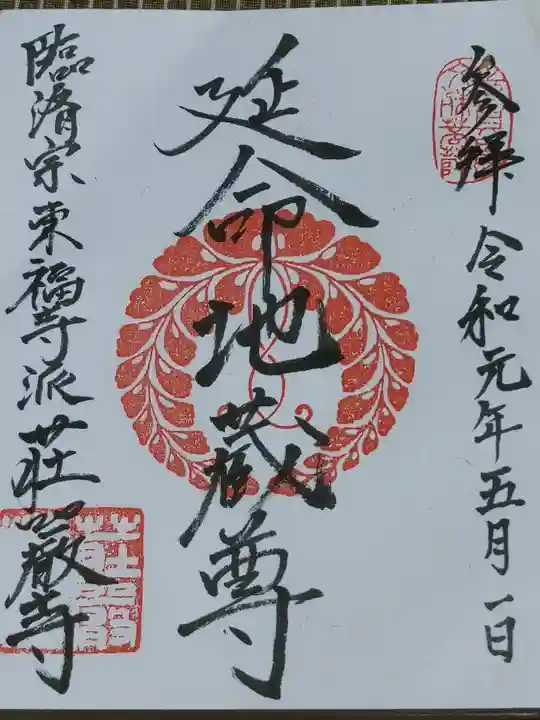 参拝 令和元年五月一日
延命地蔵尊
臨済宗東福寺派荘厳寺